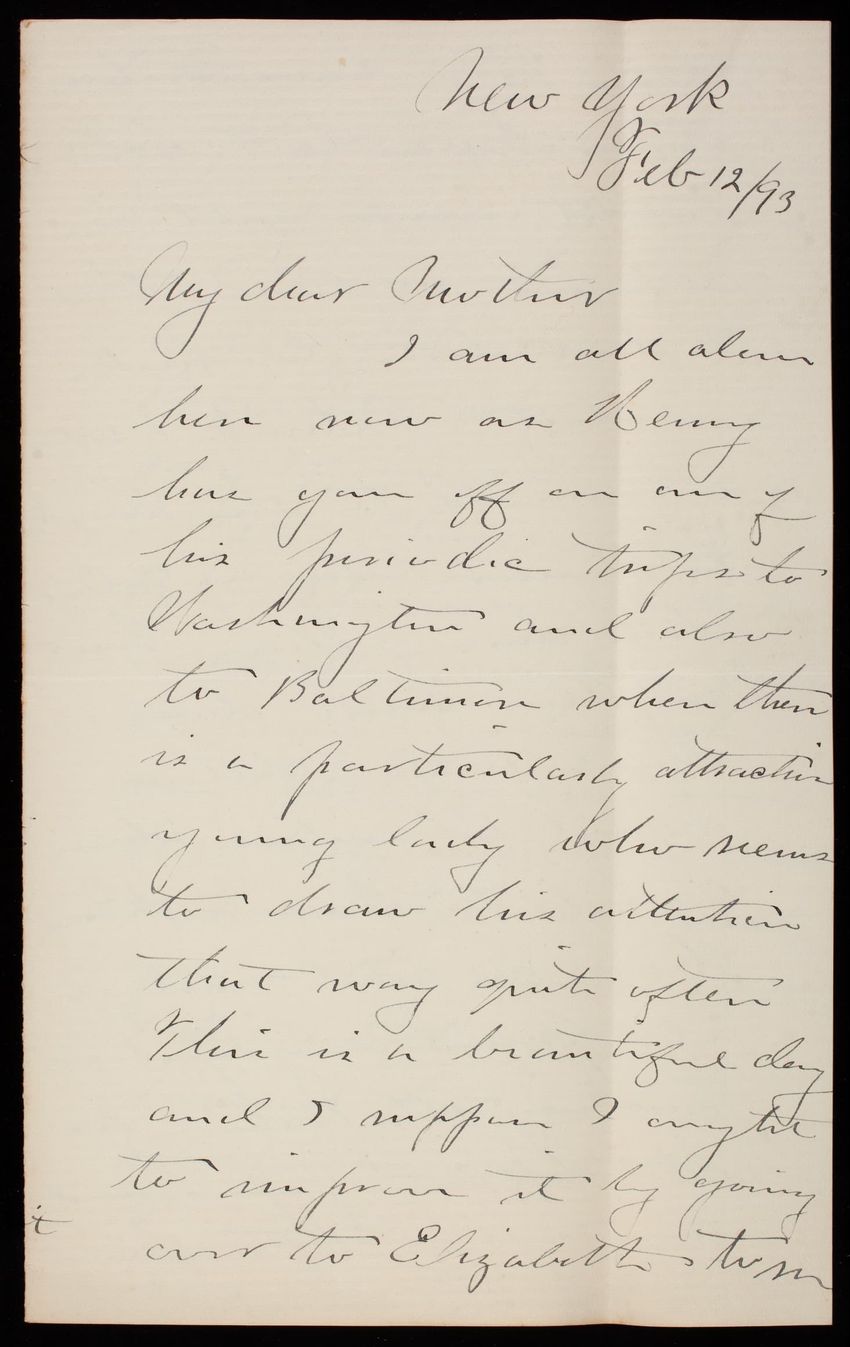 New York
Feb 12/93
My dear Mother
I am all alone
here now as Henry
has gone off on one of
his periodic trips to
Washington and also
to Baltimore where there
is a particularly attractive
young lady who seems
to draw his attention
that way quite often
This is a beautiful day
and I suppose I ought
to improve it by going
over to Elizabeth to see
it